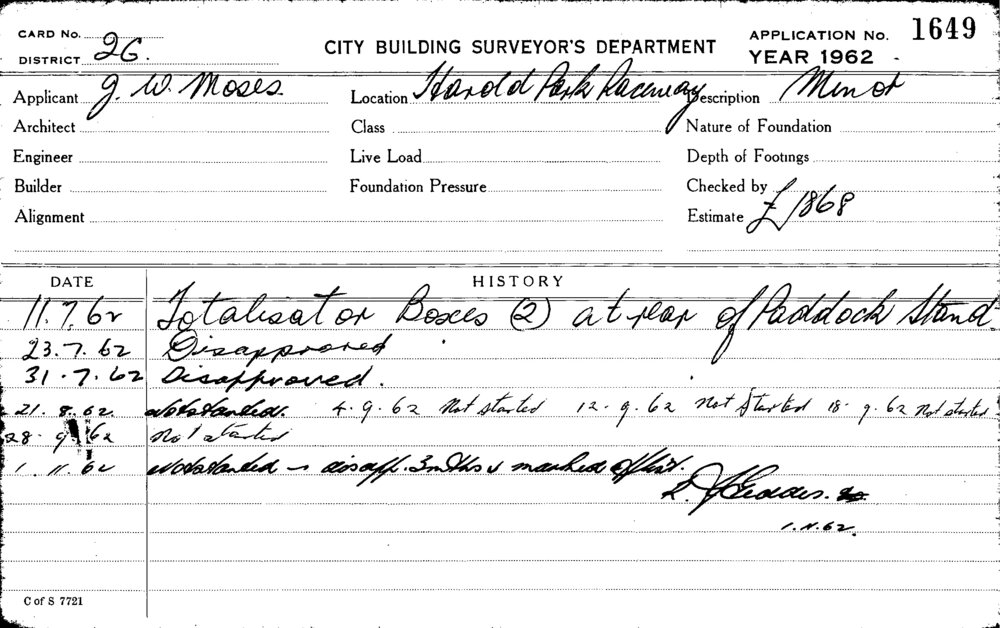 CARD No.
DISTRICT 26.
CITY BUILDING SURVEYOR'S DEPARTMENT
APPLICATION No. 1649
YEAR 1962 -
Applicant J. W. Moses Location Harold Park Raceway Description Minor
Architect Class Nature of Foundation
Engineer Live Load Depth of Footings
Builder Foundation Pressure Checked by
Alignment Estimate £1868
DATE HISTORY
11.7.62 Totalisator Boxes (2) at rear of Paddock Stand.
23.7.62 Disapproved
31.7.62 Disapproved.
21.8.62 Not started. 4.9.62 Not started 12.9.62 Not Started 18.9.62 Not started
28.9.62 Not started
1.11.62 Not started disapp. 3 mths & marked off list.
1.11.62.
C of S 7721